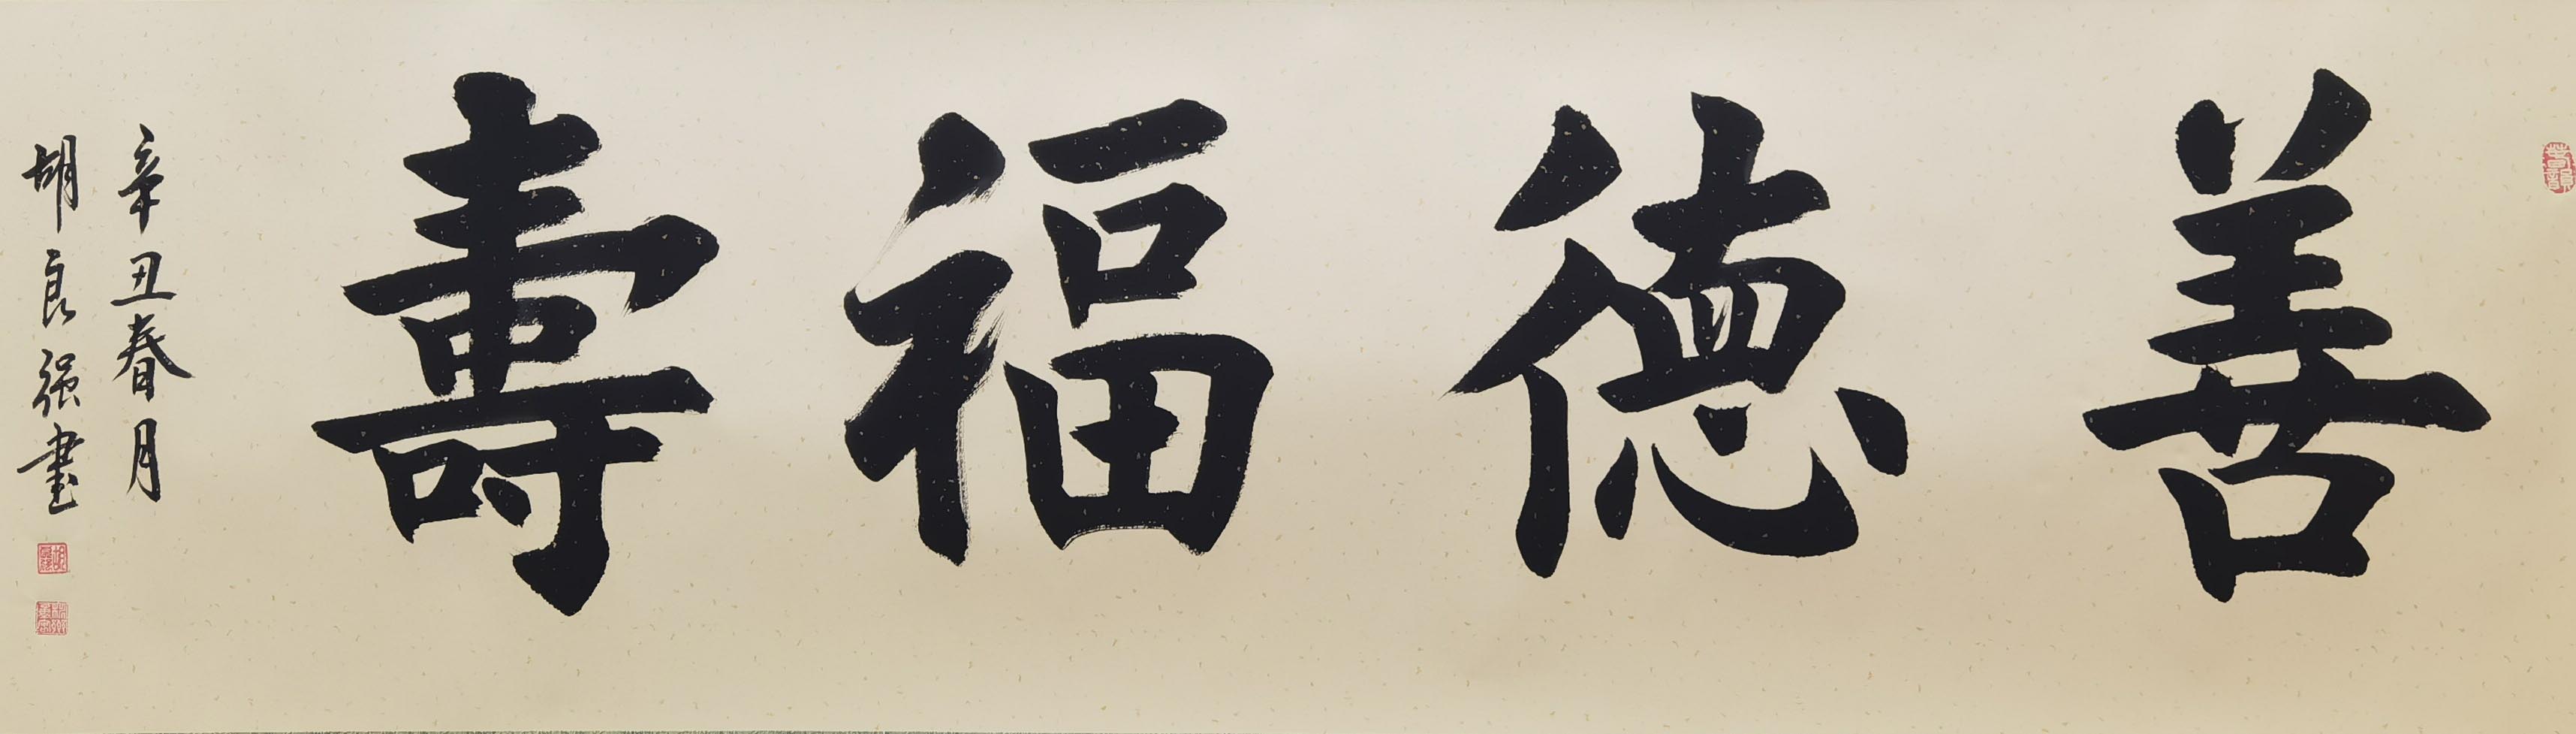 善德福壽
辛丑春月
胡良强書